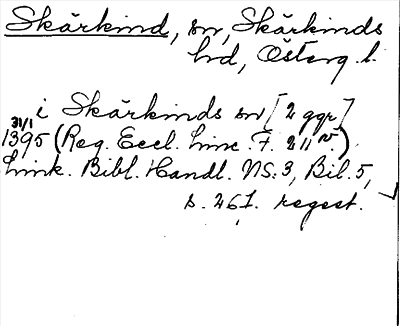 Skärkind, sn, Skärkinds
hd, Österg. l.
i Skärkinds sn [2 ggr]
31/1
1395 (Reg. Eccl. Linc. F. 211 v)
Link. Bibl. Handl. NS:3, Bil. 5,
s. 267. regest.